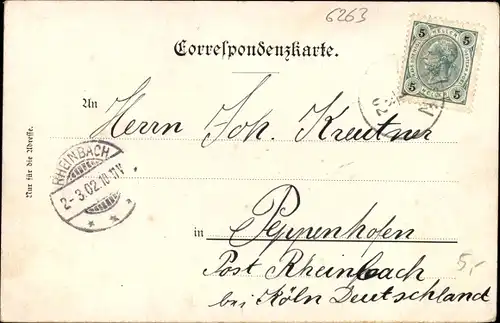 6263
Correspondenzkarte.
5 HELLER 5
5 HELLER 5
An
Herrn Joh. Kreutner
Nur für die Adresse.
RHEINBACH
2-3.02.10-11V
in Peppenhofen
Post Rheinbach
bei Köln Deutschland
5,-